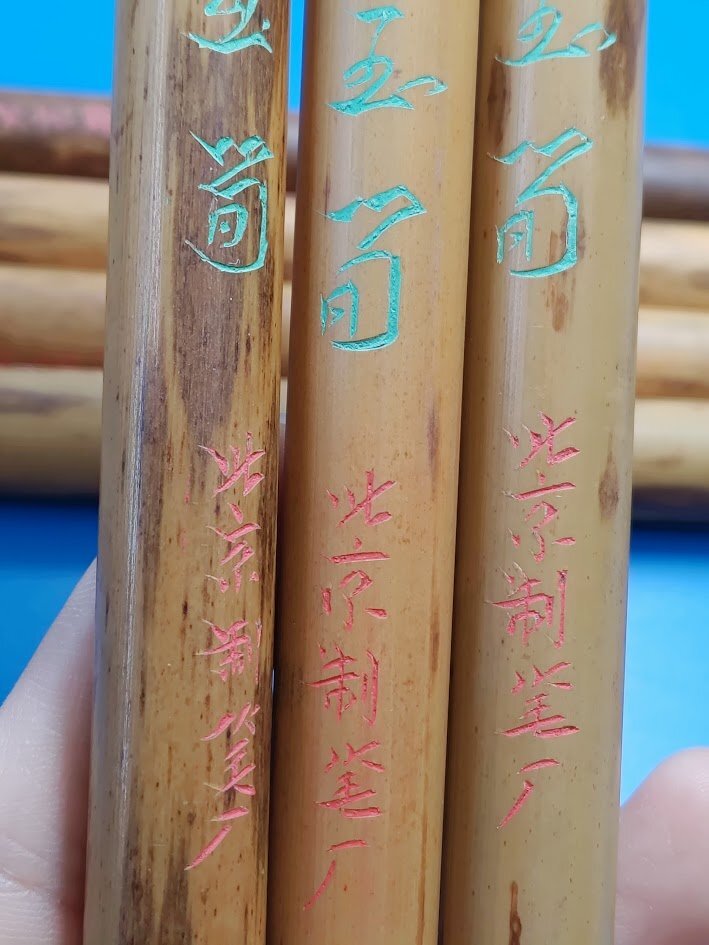 玉筍 北京制笔厂
玉筍 北京制笔厂
玉筍 北京制笔厂